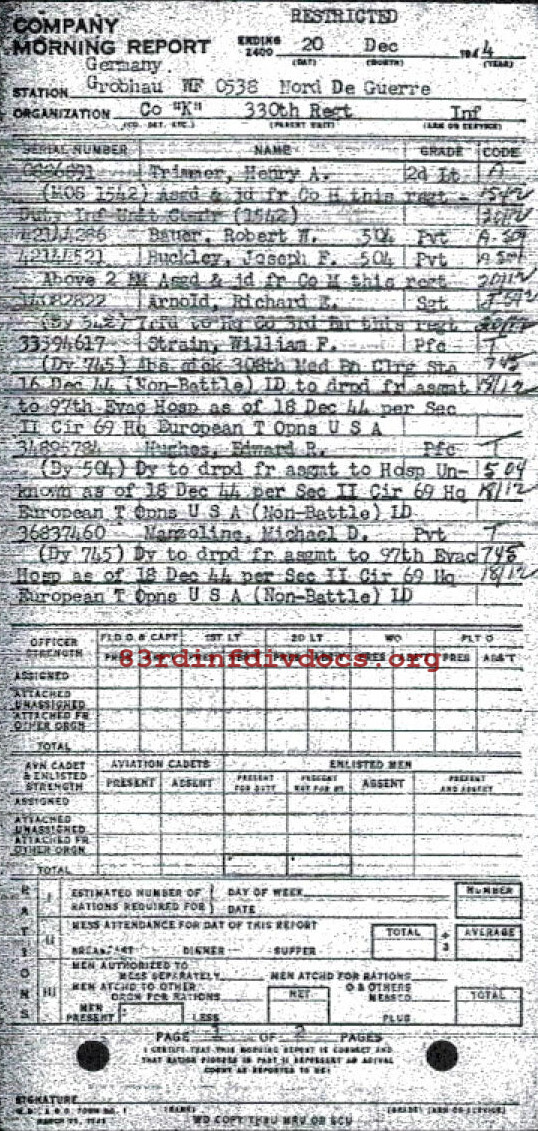 RESTRICTED
COMPANY
MORNING REPORT
ENDING 2400 20 Dec 1944
(DAY) (MONTH) (YEAR)
Germany
STATION Grobhau WF 0538 Nord De Guerre
ORGANIZATION Co "K" 330th Regt Inf
(CO. DET. ETC.) (PARENT UNIT) (ARM OR SERVICE)
SERIAL NUMBER NAME GRADE CODE
Trimmer, Henry A. 2d Lt A
(MOS 1542) Asgd & jd fr Co M this regt - 1542
Duty Inf Unit Comdr (1542) 20/12
42144286 Bauer, Robert W. 504 Pvt A-504
42144521 Buckley, Joseph F. 504 Pvt A 504
Above 2 EM Asgd & jd fr Co M this regt 20/12
Arnold, Richard E. Sgt
(Dy 542) Trfd to Hq Co 3rd Bn this regt 20/12
33594617 Strain, William F. Pfc T
(Dy 745) Abs sick 308th Med Bn Clrg Sta 745
16 Dec 44 (Non-Battle) LD to drpd fr asgmt 18/12
to 97th Evac Hosp as of 18 Dec 44 per Sec
II Cir 69 Hq European T Opns U S A
34895784 Hughes, Edward R. Pfc T
(Dy 504) Dy to drpd fr asgmt to Hosp Un- 504
known as of 18 Dec 44 per Sec II Cir 69 Hq 18/12
European T Opns U S A (Non-Battle) LD
36837460 Manzoline, Michael D. Pvt T
(Dy 745) Dy to drpd fr asgmt to 97th Evac 745
Hosp as of 18 Dec 44 per Sec II Cir 69 Hq 18/12
European T Opns U S A (Non-Battle) LD
OFFICER STRENGTH FLD O & CAPT 1ST LT 2D LT WO FLT O
PRES ABS'T
83rdinfdivdocs.org
ASSIGNED
ATTACHED UNASSIGNED
ATTACHED FR OTHER ORGN
TOTAL
AVN CADET & ENLISTED STRENGTH AVIATION CADETS ENLISTED MEN
PRESENT ABSENT PRESENT FOR DUTY PRESENT NOT FOR DY ABSENT PRESENT AND ABSENT
ASSIGNED
ATTACHED UNASSIGNED
ATTACHED FR OTHER ORGN
TOTAL
RATIONS
I ESTIMATED NUMBER OF RATIONS REQUIRED FOR DAY OF WEEK DATE NUMBER
II MESS ATTENDANCE FOR DAY OF THIS REPORT TOTAL ÷ 3 AVERAGE
BREAKFAST DINNER SUPPER
III MEN AUTHORIZED TO MESS SEPARATELY MEN ATCHD FOR RATIONS
MEN ATCHD TO OTHER ORGN FOR RATIONS NET O & OTHERS MESSED TOTAL
MEN PRESENT LESS PLUS
PAGE 1 OF 2 PAGES
I CERTIFY THAT THIS MORNING REPORT IS CORRECT AND
THAT RATION FIGURES IN PART II REPRESENT AN ACTUAL
COUNT AS REPORTED TO ME:
SIGNATURE
W.D., A.G.O. FORM NO. 1
(NAME) (GRADE) (ARM OR SERVICE)
WD COPY THRU MRU OR SCU